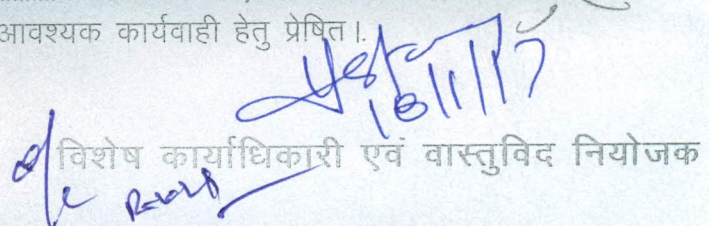 आवश्यक कार्यवाही हेतु प्रेषित।
18/1/17
विशेष कार्याधिकारी एवं वास्तुविद नियोजक